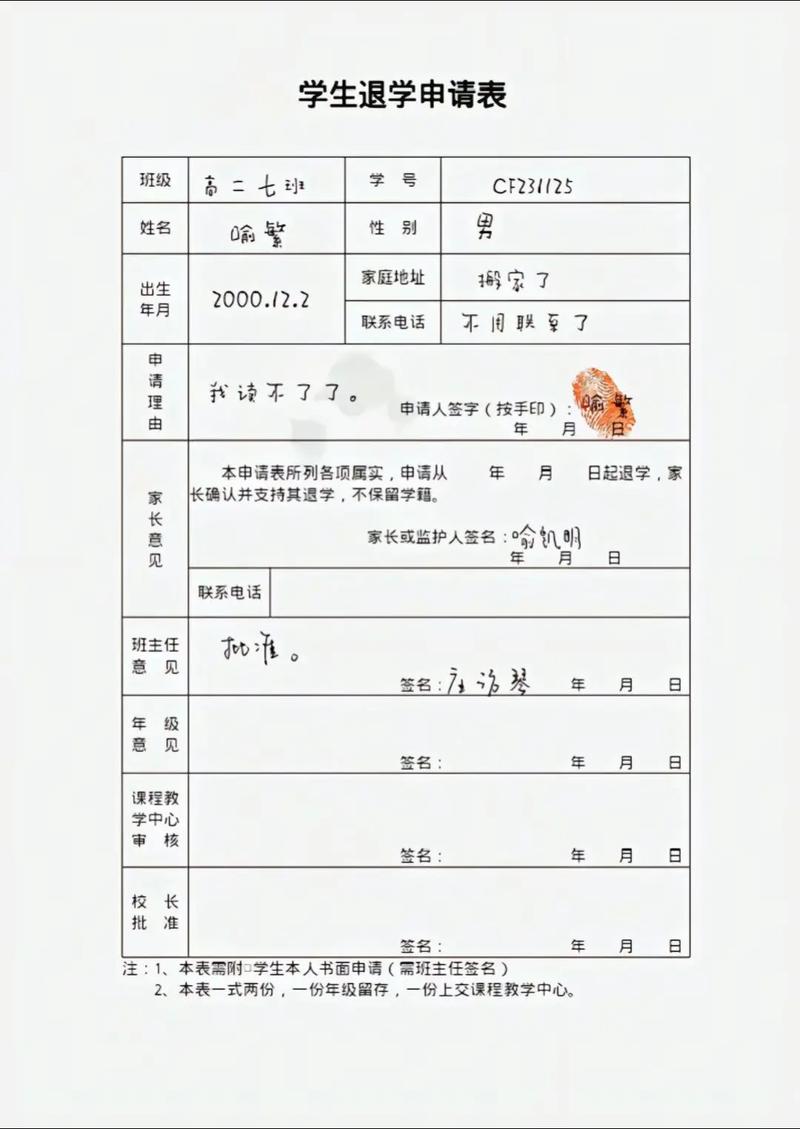 学生退学申请表
班级 高二七班 学 号 CF231125
姓名 喻繁 性 别 男
出生年月 2000.12.2 家庭地址 搬家了
联系电话 不用联系了
申请理由 我读不了了。
申请人签字（按手印）：喻繁
年 月 日
家长意见
本申请表所列各项属实，申请从 年 月 日起退学，家
长确认并支持其退学，不保留学籍。
家长或监护人签名：喻凯明
年 月 日
联系电话
班主任意 见 批准。
签名：庄访琴 年 月 日
年 级意 见
签名： 年 月 日
课程教学中心审 核
签名： 年 月 日
校 长批 准
签名： 年 月 日
注：1、本表需附□学生本人书面申请（需班主任签名）
2、本表一式两份，一份年级留存，一份上交课程教学中心。